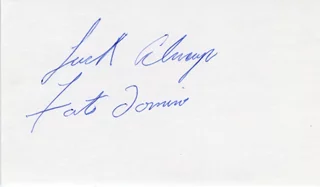 Luck Always
Fats Domino